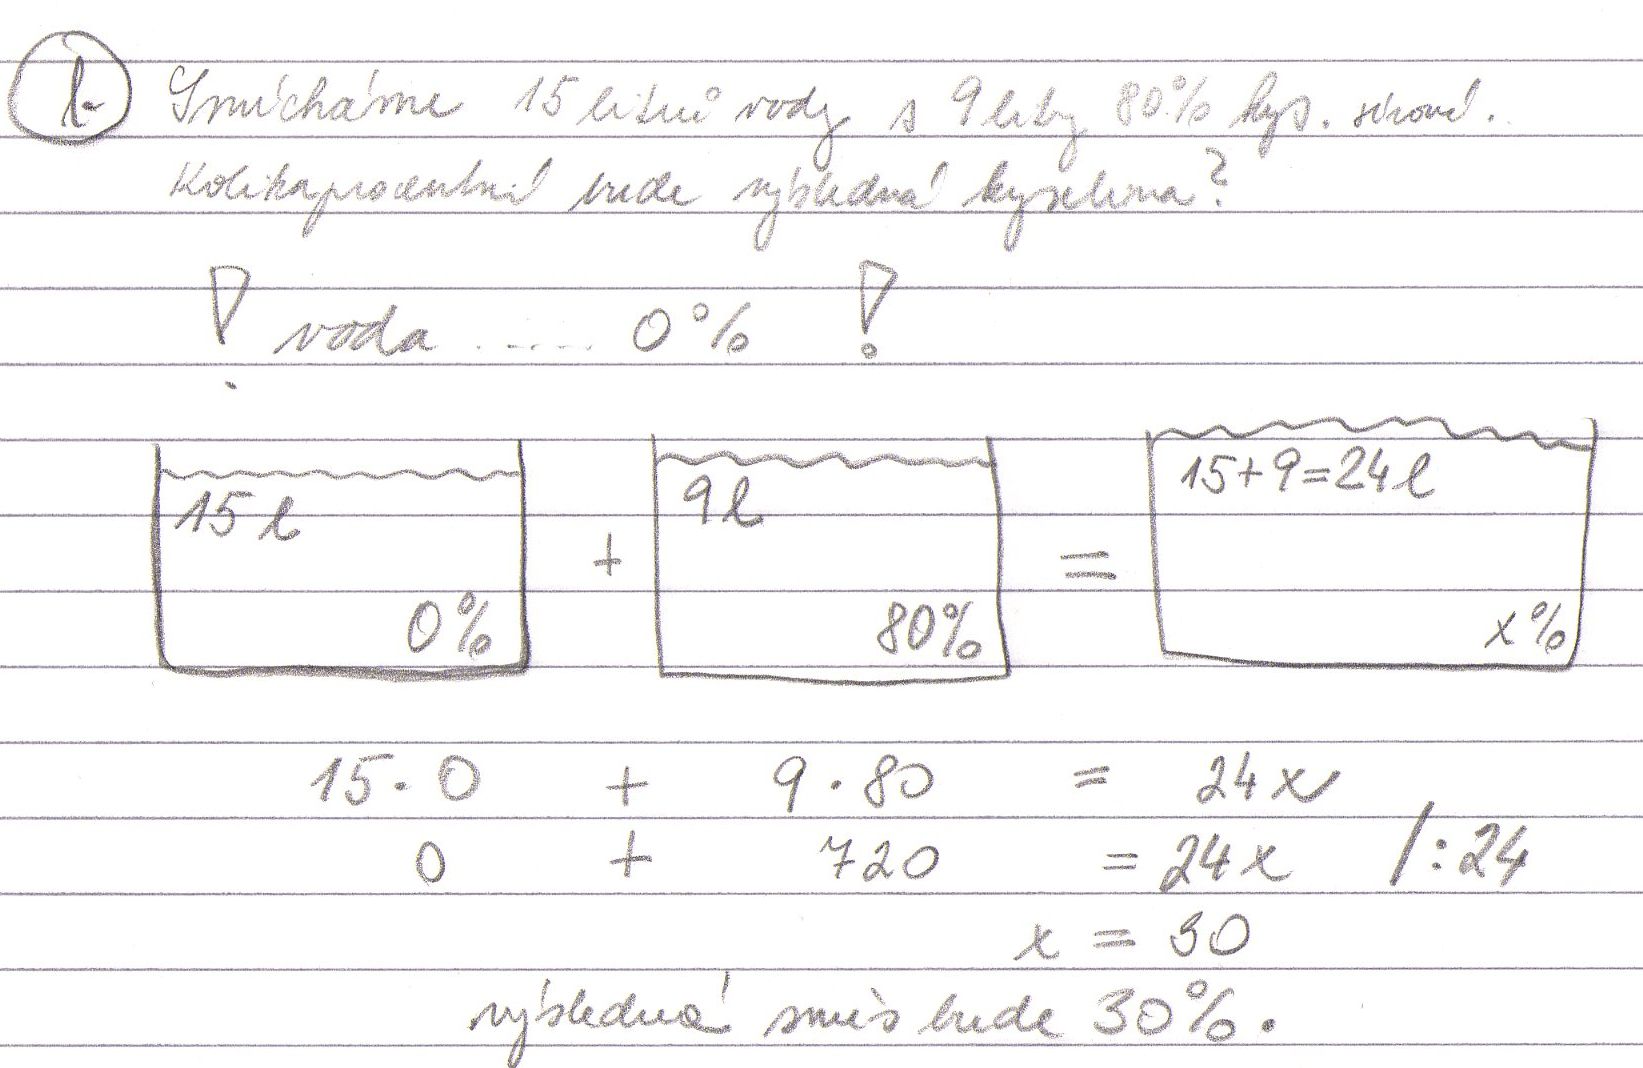 1. Smícháme 15 litrů vody s 9 litry 80% kys. sírové.
Kolikaprocentní bude výsledná kyselina?
! voda ........ 0% !
15 l + 9 l = 15+9=24 l
0% 80% x%
15·0 + 9·80 = 24x
0 + 720 = 24x /:24
x = 30
výsledná směs bude 30%.